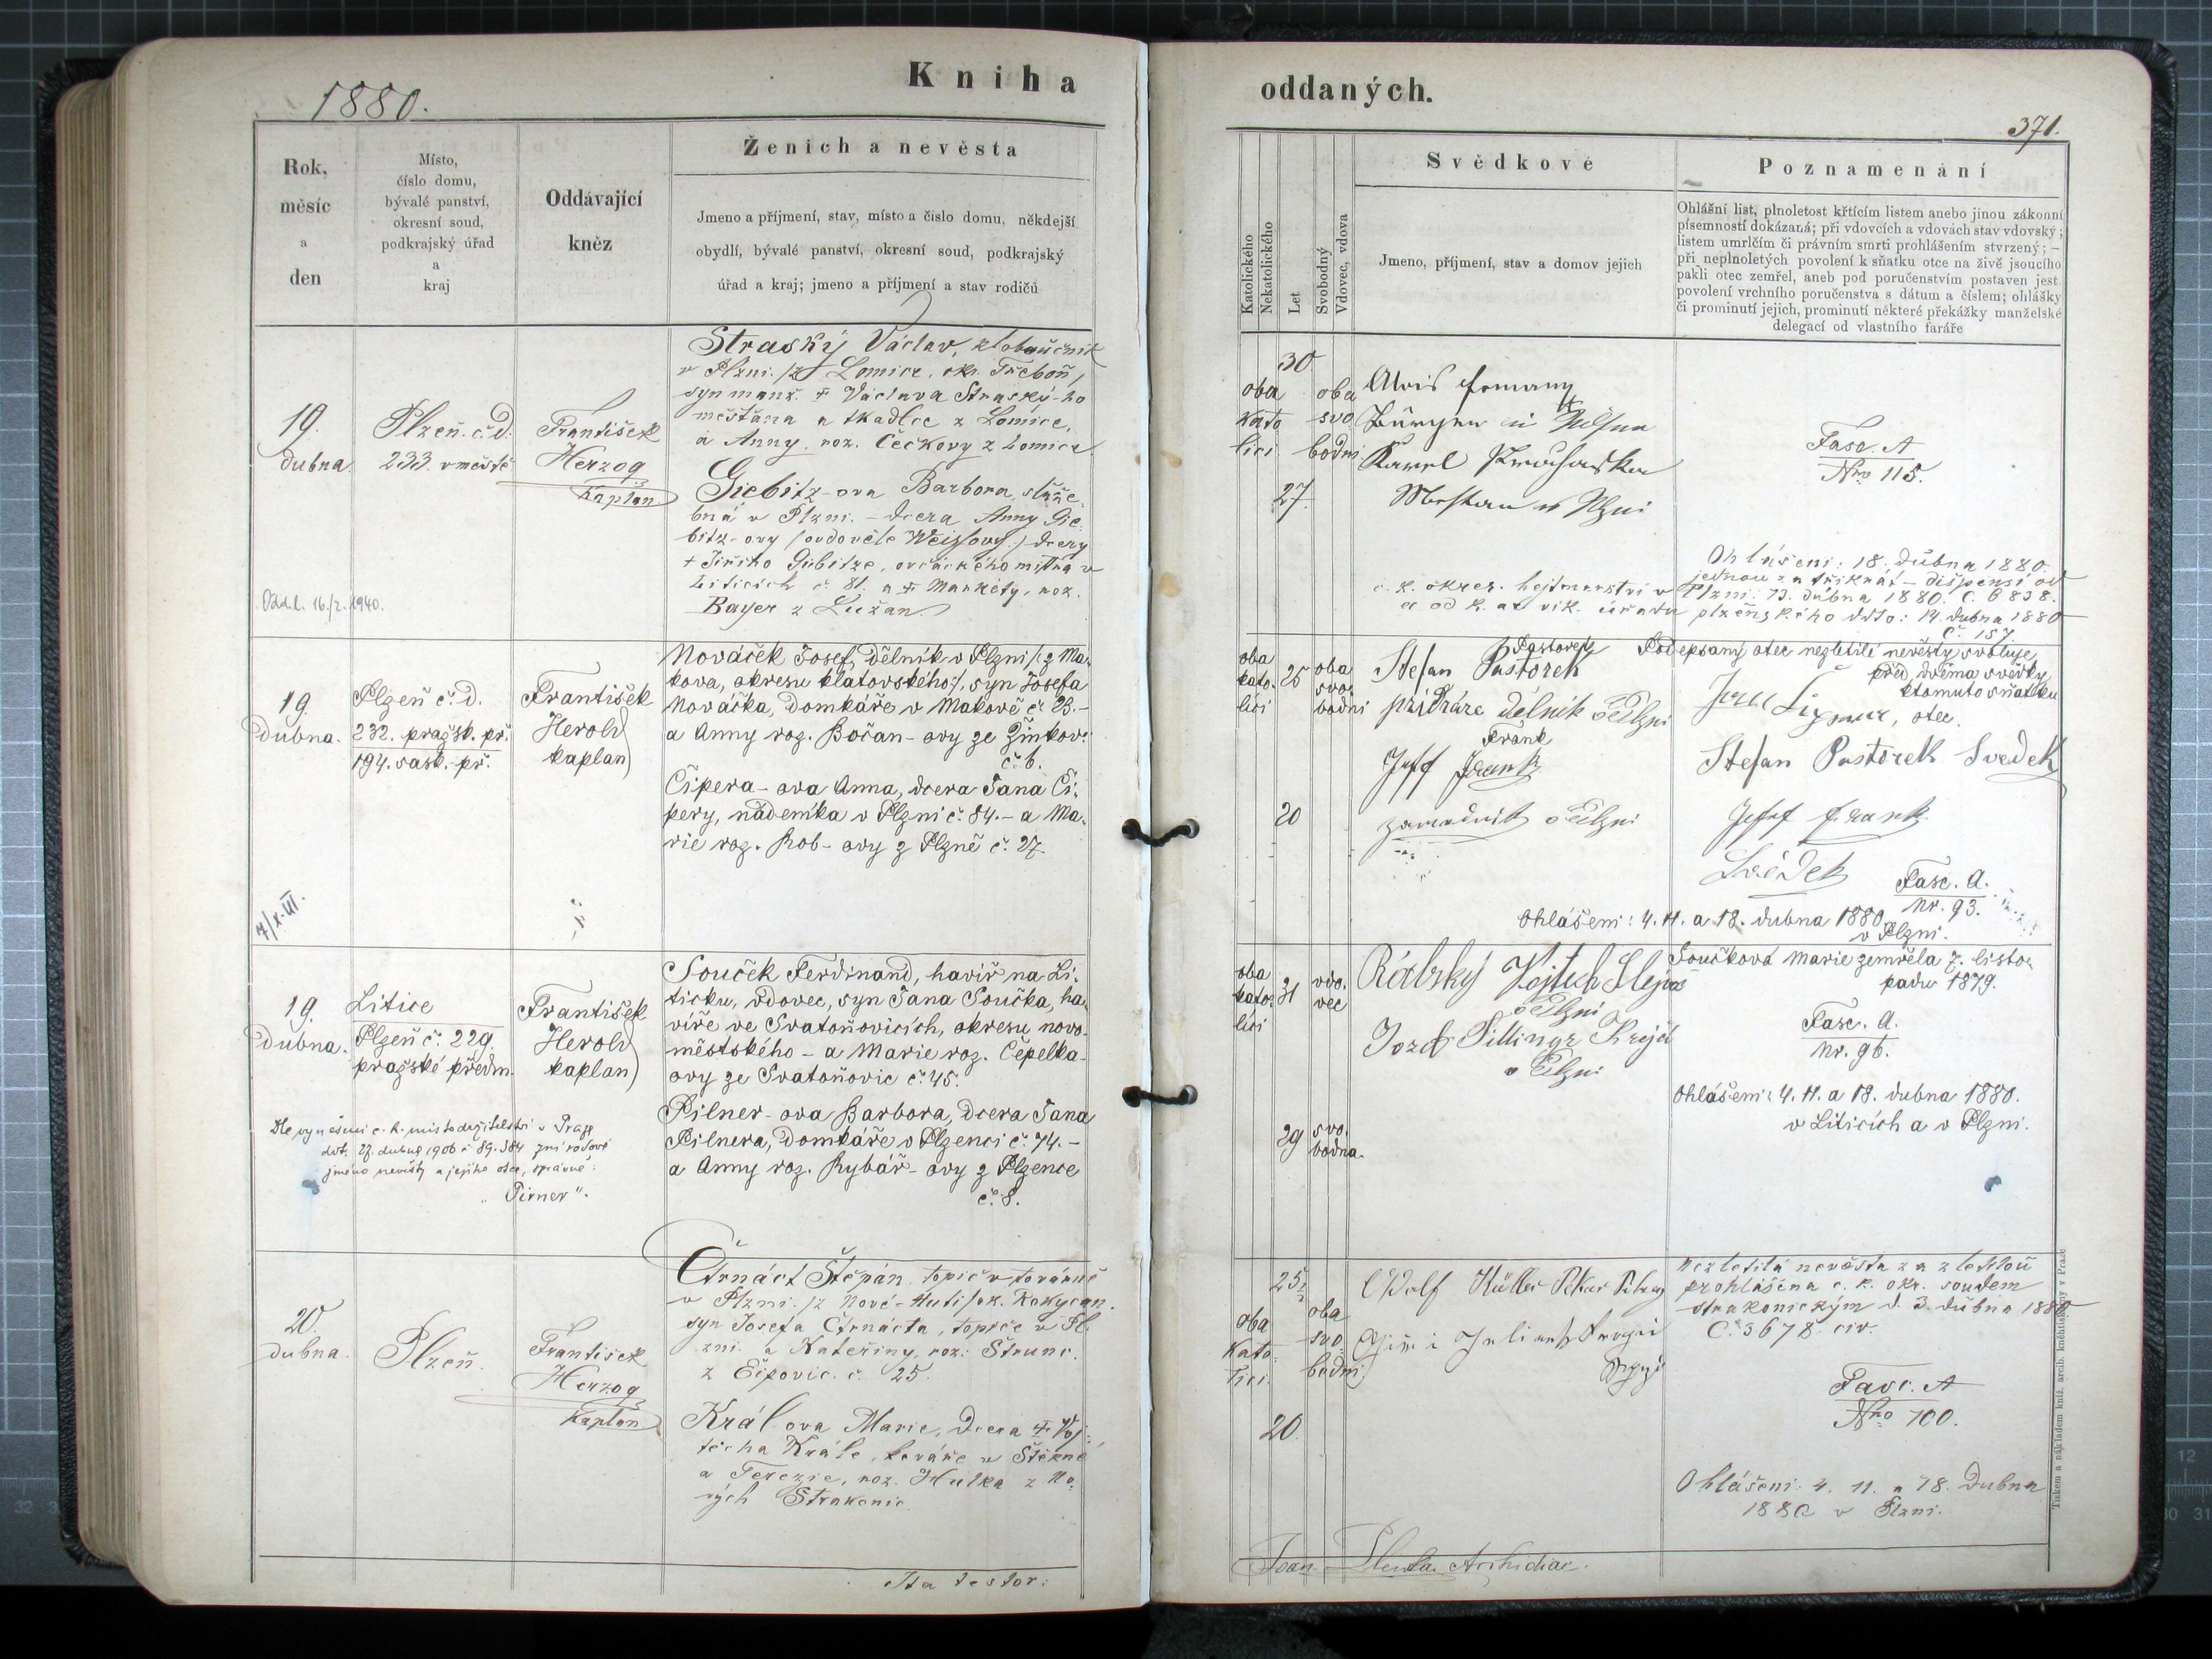 1880.
Kniha
Rok,
měsíc
a
den
Místo,
číslo domu,
bývalé panství,
okresní soud,
podkrajský úřad
a
kraj
Oddávající
kněz
Ženich a nevěsta
Jmeno a příjmení, stav, místo a číslo domu, někdejší
obydlí, bývalé panství, okresní soud, podkrajský
úřad a kraj; jmeno a příjmení a stav rodičů
19.
dubna
Plzeň. č. d.
233. v městě
František
Herzog
Kaplan
Straský Václav, kloboučník
v Plzni. /z Lomice, okr. Třeboň/,
syn manž. + Václava Straský-ho
měšťana a tkadlce z Lomice,
a Anny, roz. Čečkovy z Lomice
Giebitz-ova Barbora, služe
bná v Plzni. - dcera Anny Gie
bitz-ovy /ovdovělé Weissovy./ dcery
+ Jiřího Giebitze, ovčáckého mistra v
Liticích č 81. a + Markéty, roz.
Bayer z Lužan.
Odd. l. 16./2. 1940.
19.
Dubna.
Plzeň č. d.
232. pražsk. př.
194. sask. př.
František
Herold
kaplan
Nováček Josef, dělník v Plzni /: z Ma-
kova, okresu klatovského:/, syn Josefa
Nováčka, domkáře v Makově č. 23. -
a Anny roz. Bočan-ovy ze Žinkov:
č. 6.
Čipera-ova Anna, dcera Jana Či-
pery, nádeníka v Plzni č. 84. - a Ma-
rie roz. Rob-ovy z Plzně č. 27.
7/X. III.
19.
Dubna.
Litice
Plzeň č. 229.
pražské předm.
František
Herold
kaplan
Souček Ferdinand, havíř na Li-
ticku, vdovec, syn Jana Součka, ha-
víře ve Svatoňovicích, okresu novo-
městského - a Marie roz. Čepelka-
ovy ze Svatoňovic č. 45.
Pilner-ova Barbora, dcera Jana
Pilnera, domkáře v Plzenci č. 74. -
a Anny roz. Rybář-ovy z Plzence
č. 8.
Dle vynešení c. k. místodržitelství v Praze
dto. 27. dubna 1906 č 89.384 zní rodové
jméno nevěsty a jejího otce, správně:
„Pirner“.
20.
dubna.
Plzeň.
František
Herzog
Kaplan
Črnáct Štěpán, topič v továrně
v Plzni. /z Nové-Huti/ok. Rokycan.
syn Josefa Črnácta, topiče v Pl.
zni. a Kateřiny, roz: Strunc.
z Ejpovic. č. 25.
Král ova Marie, Dcera + Voj-
těcha Krále, kováře v Štěkně
a Terezie, roz. Hulka z No-
vých Strakonic.
Ita testor:
oddaných.
371.
Katolického
Nekatolického
Let
Svobodný
Vdovec, vdova
Svědkové
Jmeno, příjmení, stav a domov jejich
Poznamenání
Ohlášní list, plnoletost křtícím listem anebo jinou zákonní
písemností dokázaná; při vdovcích a vdovách stav vdovský;
listem umrlčím či právním smrti prohlášením stvrzený; –
při neplnoletých povolení k sňatku otce na živě jsoucího
pakli otec zemřel, aneb pod poručenstvím postaven jest
povolení vrchního poručenstva s dátum a číslem; ohlášky
či prominutí jejich, prominutí některé překážky manželské
delegací od vlastního faráře
30
oba
kato
lici
27.
oba
svo
bodni
Alois
Karel
v Plzni
Fasc. A
Nro 115.
Ohlášení: 18. Dubna 1880.
jednou za třikrát - dispensí od
c. k. okres. hejtmanství v Plzni. 13. dubna 1880. č. 6838.
a od k. a. vik. úřadu plzeňského ddto: 14. dubna 1880
č. 157.
oba
kato-
lici
25
oba
svo-
bodni
20
Pastorek
Stefan Pastorek
dělník v Plzni
Frank
Josef Frank
v Plzni
Podepsaný otec nezletilé nevěsty svoluje
před dvěma svědky
k tomuto sňatku
otec.
Stefan Pastorek Svedek
Josef Frank
Svědek
Fasc. A.
Nr. 93.
Ohlášení: 4. 11. a 18. dubna 1880
v Plzni.
oba
kato-
lici
31
vdo-
vec
29
svo-
bodna.
Vojtěch
v Plzni
Krejčí
v Plzni
Součková Marie zemřela 7. listo-
padu 1879.
Fasc. A.
Nr. 96.
Ohlášení: 4. 11. a 18. dubna 1880.
v Liticích a v Plzni.
25½
oba
kato:
lici.
20
oba
svo
bodni
Müller
Nezletilá nevěsta za zletilou
prohlášena c. k. okr. soudem
strakonickým d. 3. dubna 1880
Č. 3678. civ.
Fasc. A
Nro 100.
Ohlášení: 4. 11. a 18. Dubna
1880 v Plzni.
Archidiac.
Tiskem a nákladem kníž. arcib. knihtiskárny v Praze